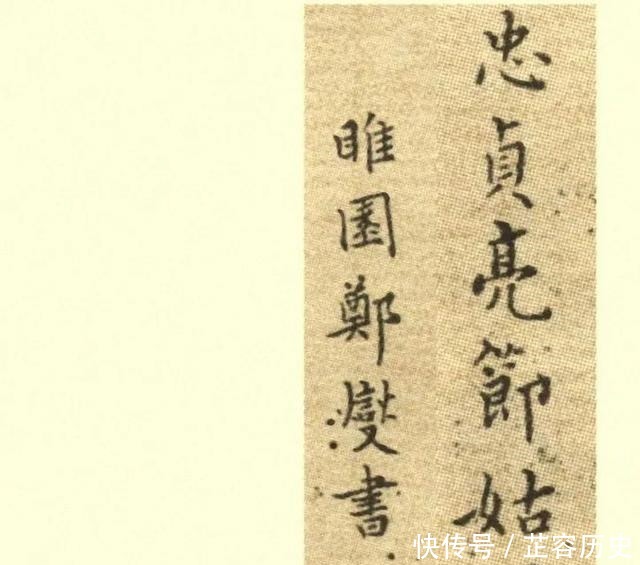 忠貞亮節姑
睢園鄭燮書
快传号/芷容历史